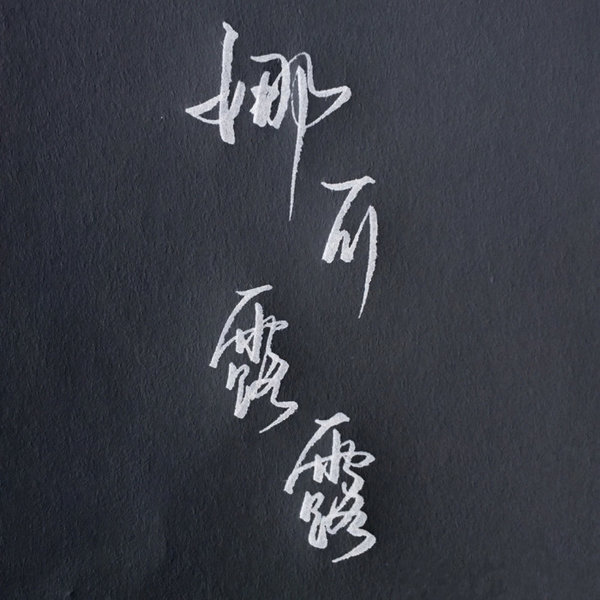 娜可露露